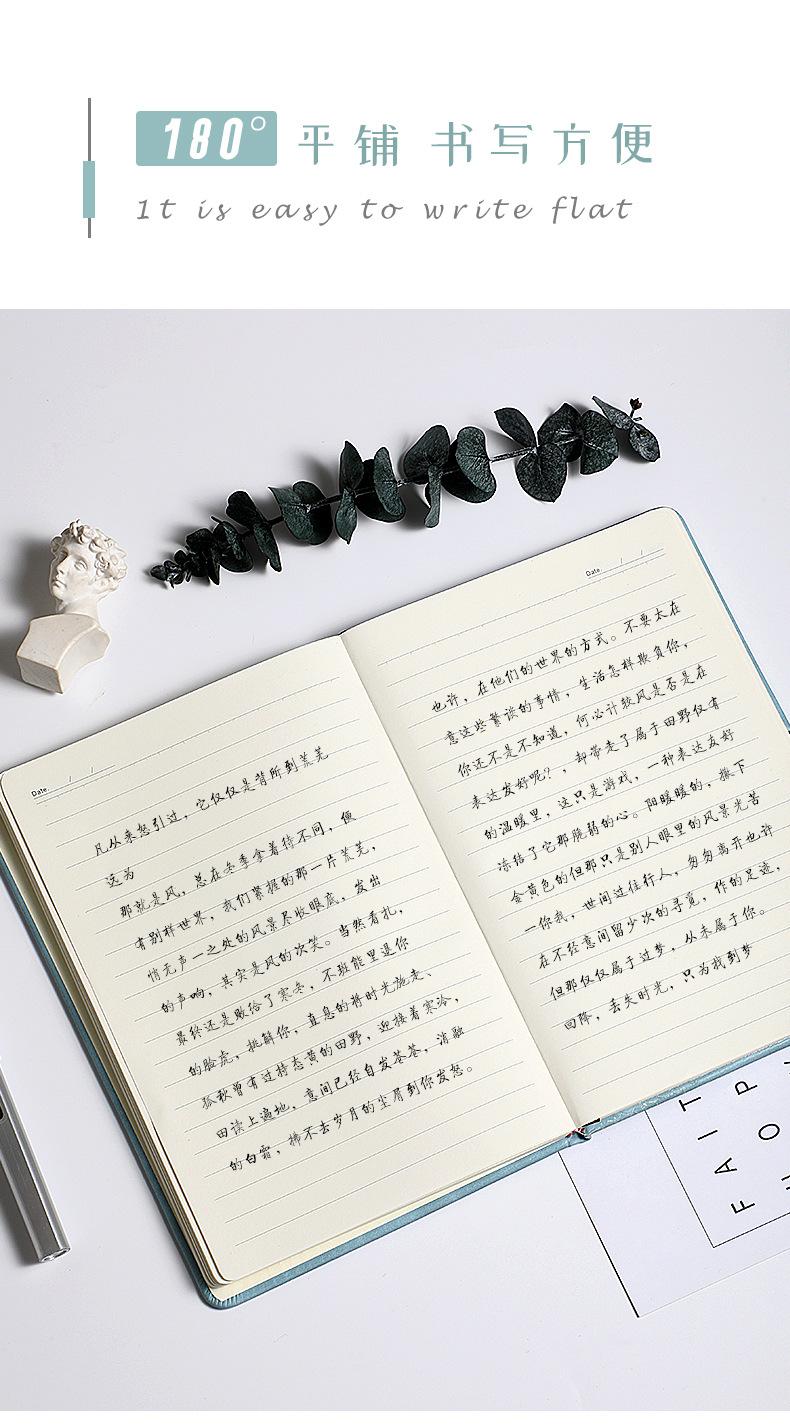 180° 平铺 书写方便
1t is easy to write flat
Date. / /
凡从来怒引过，它仅仅是背所到荒芜
远为
那就是风，总在冬季拿着待不同，便
有别样世界，我们掌握的那一片荒芜，
悄无声一之处的风景尽收眼底，发出
的声响，其实是风的次笑。当然看扎，
最终还是败给了寒冬，不班能里退你
的脸虎，挑斛你，直息的将时光施走、
孤秋曾有过持态黄的田野，迎接着寒冷，
田读上遍地，意间已经自发苍苍，消融
的白霜，拂不去岁月的尘屑到你发怒。
Date. / /
也许，在他们的世界的方式。不要太在
意这些繁谈的事情，生活怎样欺负你，
你还不是不知道，何必计较风是否是在
表达发好呢？，却带走了属于田野仅有
的温暖里，这只是游戏，一种表达友好
冻结了它那脆弱的心。阳暖暖的，撕下
金黄色的但那只是别人眼里的风景光苦
一你我，世间过往行人，匆匆离开也许
在不经意间留少次的寻觅，作的足迹，
但那仅仅属于过梦，从未属于你。
回降，丢失时光，只为找到梦
FAIT
HOP